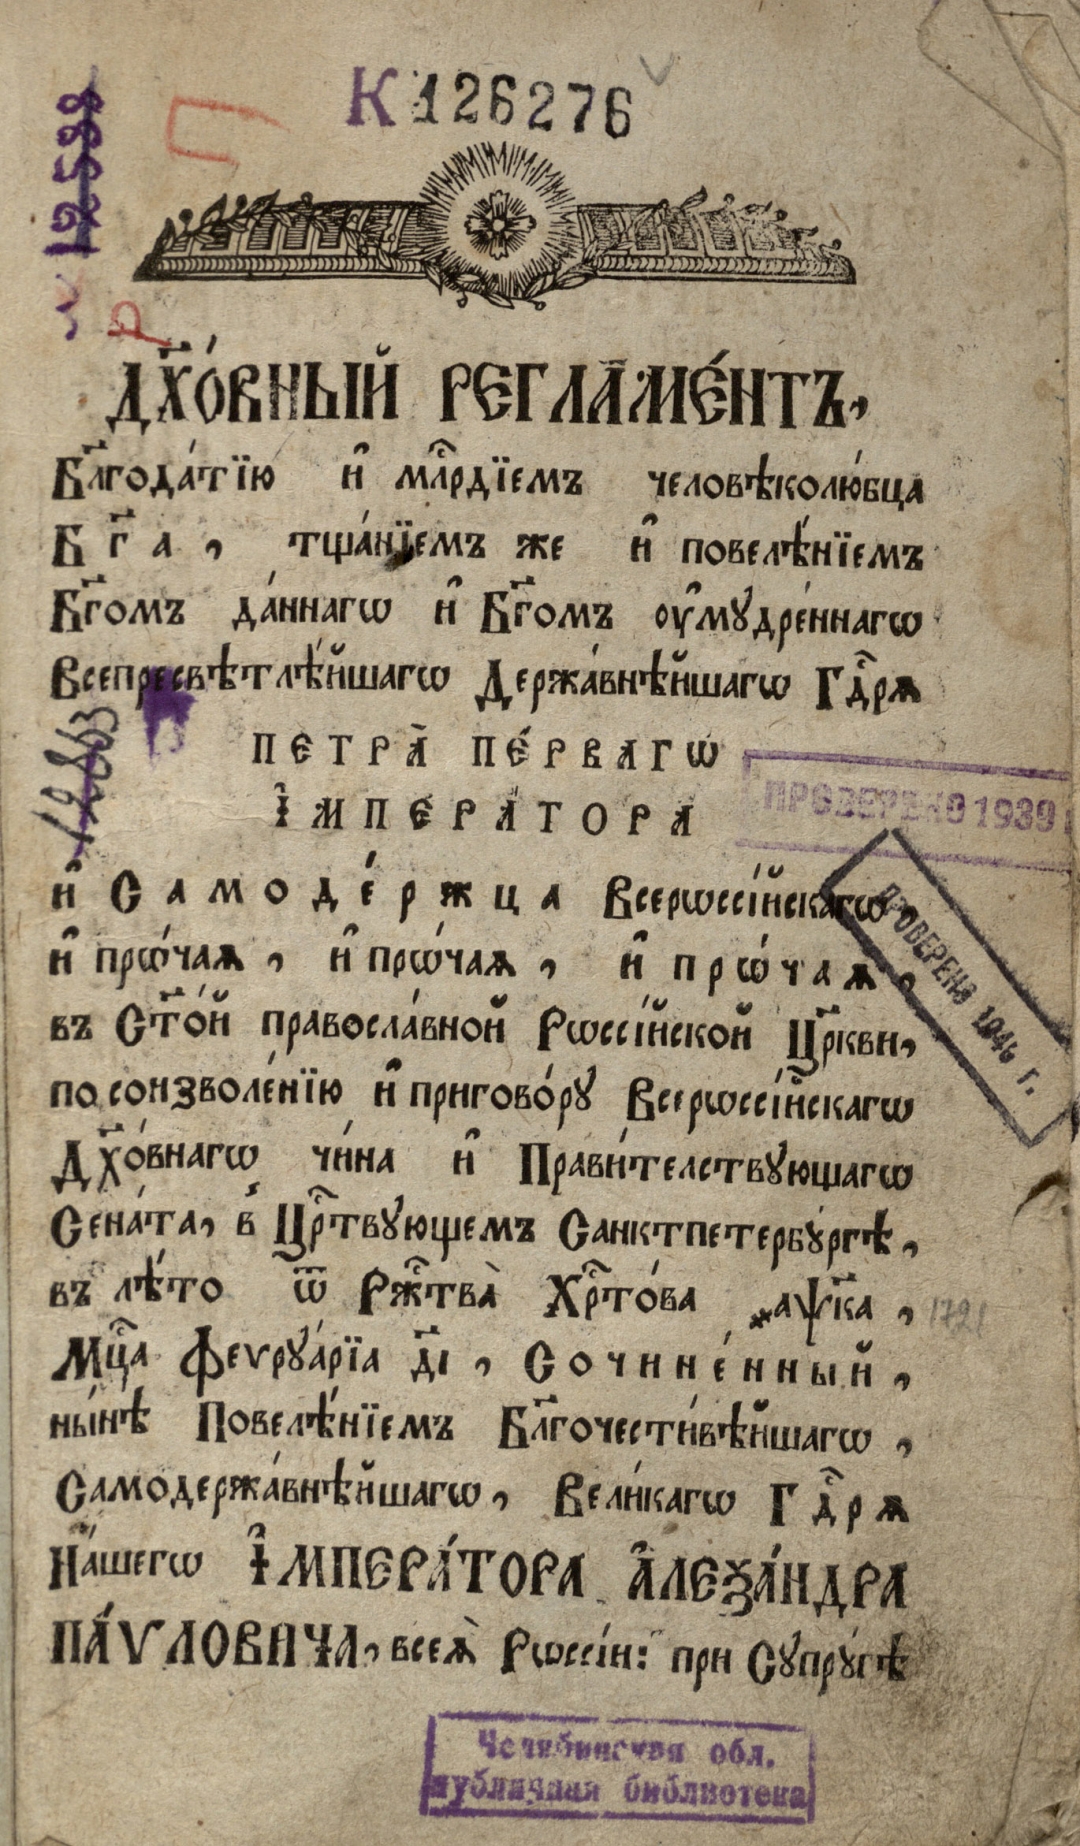 К 126276
12588
Дꙋ҃хо́вный регла́ме́нтъ,
Бл҃года́тїю и҆ млⷭ҇рдїемъ человѣколю́бца
Бг҃а, тща́нїемъ же и҆ повелѣ́нїемъ
Бг҃омъ да́ннагѡ и҆ Бг҃омъ ᲂу҆мꙋдре́ннагѡ
Всепресвѣтлѣ́йшагѡ Держа́внѣйшагѡ Гдⷭ҇рѧ
ПЕТРА̀ ПЕ́РВАГѠ
І҆МПЕРА́ТОРА
и҆ Самоде́ржца Всерѡссі́йскагѡ,
и҆ прѡ́чаѧ, и҆ прѡ́чаѧ, и҆ прѡ́чаѧ,
въ Ст҃о́й правосла́вной Рѡссі́йской Цр҃кви,
по соизволе́нїю и҆ пригово́рꙋ Всерѡссі́йскагѡ
Дх҃о́внагѡ чи́на и҆ Прави́телствꙋющагѡ
Сена́та, в̾ Црⷭ҇твꙋющемъ Санктпетербꙋ́ргѣ,
въ лѣ́то ѿ Ржⷭ҇тва̀ Хрⷭ҇то́ва ҂аѱк҃а, 1721
Мцⷭ҇а Феѵрꙋа́рїа д҃і, Сочине́нный,
ны́нѣ Повелѣ́нїемъ Бл҃гочести́вѣйшагѡ,
Самодержа́внѣйшагѡ, Вели́кагѡ Гдⷭ҇рѧ
На́шегѡ І҆МПЕРА́ТОРА А҆ЛЕѮА́НДРА
ПА́ѴЛОВИЧА, всеѧ̀ Рѡссі́и: при Сꙋпрꙋ́гѣ
ПРОВЕРЕНО 1939
ПРОВЕРЕНО 1946 г.
Челябинская обл.
публичная библиотека